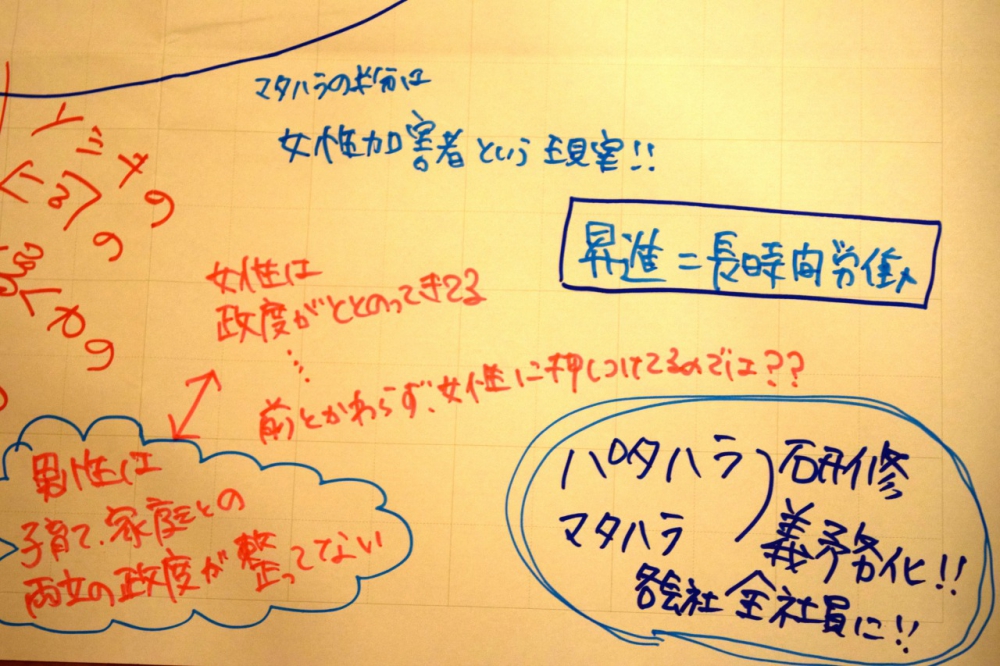 マタハラの半分は
女性加害者という現実!!
昇進=長時間労働
女性は
政度がととのってきてる
前とかわらず、女性に押しつけてるのでは??
男性は
子育て、家庭との
両立の政度が整ってない
パタハラ
マタハラ
研修
義務化!!
各会社全社員に!!